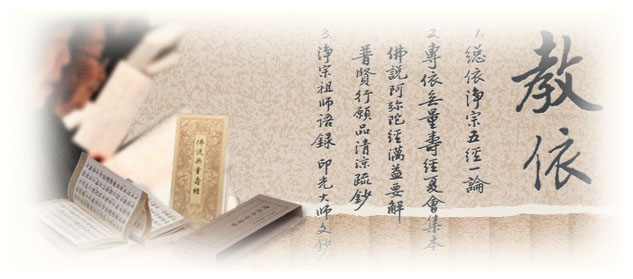 教依
1.總依淨宗五經一論
2.專依無量壽經夏會集本
佛說阿弥陀經蕅益要解
普賢行願品清涼疏鈔
3.淨宗祖師语錄 印光大师文鈔
佛說無量壽經